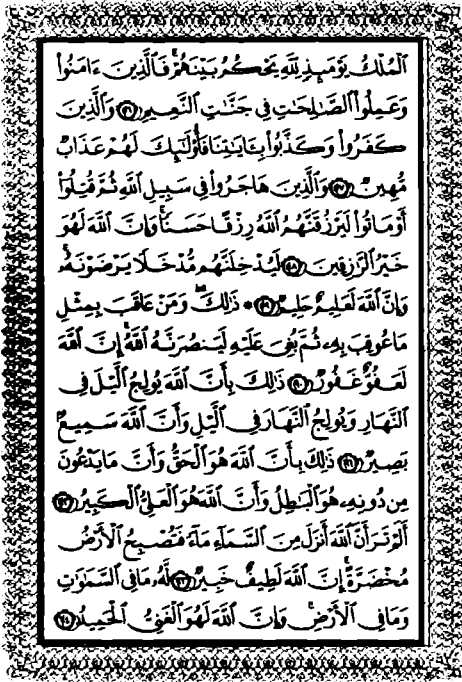 ٱلۡمُلۡكُ يَوۡمَئِذٖ لِّلَّهِ يَحۡكُمُ بَيۡنَهُمۡۚ فَٱلَّذِينَ ءَامَنُواْ
وَعَمِلُواْ ٱلصَّٰلِحَٰتِ فِي جَنَّٰتِ ٱلنَّعِيمِ ﴿٥٦﴾ وَٱلَّذِينَ
كَفَرُواْ وَكَذَّبُواْ بِـَٔايَٰتِنَا فَأُوْلَٰٓئِكَ لَهُمۡ عَذَابٞ
مُّهِينٞ ﴿٥٧﴾ وَٱلَّذِينَ هَاجَرُواْ فِي سَبِيلِ ٱللَّهِ ثُمَّ قُتِلُوٓاْ
أَوۡ مَاتُواْ لَيَرۡزُقَنَّهُمُ ٱللَّهُ رِزۡقًا حَسَنٗاۚ وَإِنَّ ٱللَّهَ لَهُوَ
خَيۡرُ ٱلرَّٰزِقِينَ ﴿٥٨﴾ لَيُدۡخِلَنَّهُم مُّدۡخَلٗا يَرۡضَوۡنَهُۥۚ
وَإِنَّ ٱللَّهَ لَعَلِيمٌ حَلِيمٞ ﴿٥٩﴾ * ذَٰلِكَۖ وَمَنۡ عَاقَبَ بِمِثۡلِ
مَا عُوقِبَ بِهِۦ ثُمَّ بُغِيَ عَلَيۡهِ لَيَنصُرَنَّهُ ٱللَّهُۚ إِنَّ ٱللَّهَ
لَعَفُوٌّ غَفُورٞ ﴿٦٠﴾ ذَٰلِكَ بِأَنَّ ٱللَّهَ يُولِجُ ٱلَّيۡلَ فِي
ٱلنَّهَارِ وَيُولِجُ ٱلنَّهَارَ فِي ٱلَّيۡلِ وَأَنَّ ٱللَّهَ سَمِيعُۢ
بَصِيرٞ ﴿٦١﴾ ذَٰلِكَ بِأَنَّ ٱللَّهَ هُوَ ٱلۡحَقُّ وَأَنَّ مَا يَدۡعُونَ
مِن دُونِهِۦ هُوَ ٱلۡبَٰطِلُ وَأَنَّ ٱللَّهَ هُوَ ٱلۡعَلِيُّ ٱلۡكَبِيرُ ﴿٦٢﴾
أَلَمۡ تَرَ أَنَّ ٱللَّهَ أَنزَلَ مِنَ ٱلسَّمَآءِ مَآءٗ فَتُصۡبِحُ ٱلۡأَرۡضُ
مُخۡضَرَّةًۚ إِنَّ ٱللَّهَ لَطِيفٌ خَبِيرٞ ﴿٦٣﴾ لَّهُۥ مَا فِي ٱلسَّمَٰوَٰتِ
وَمَا فِي ٱلۡأَرۡضِۚ وَإِنَّ ٱللَّهَ لَهُوَ ٱلۡغَنِيُّ ٱلۡحَمِيدُ ﴿٦٤﴾